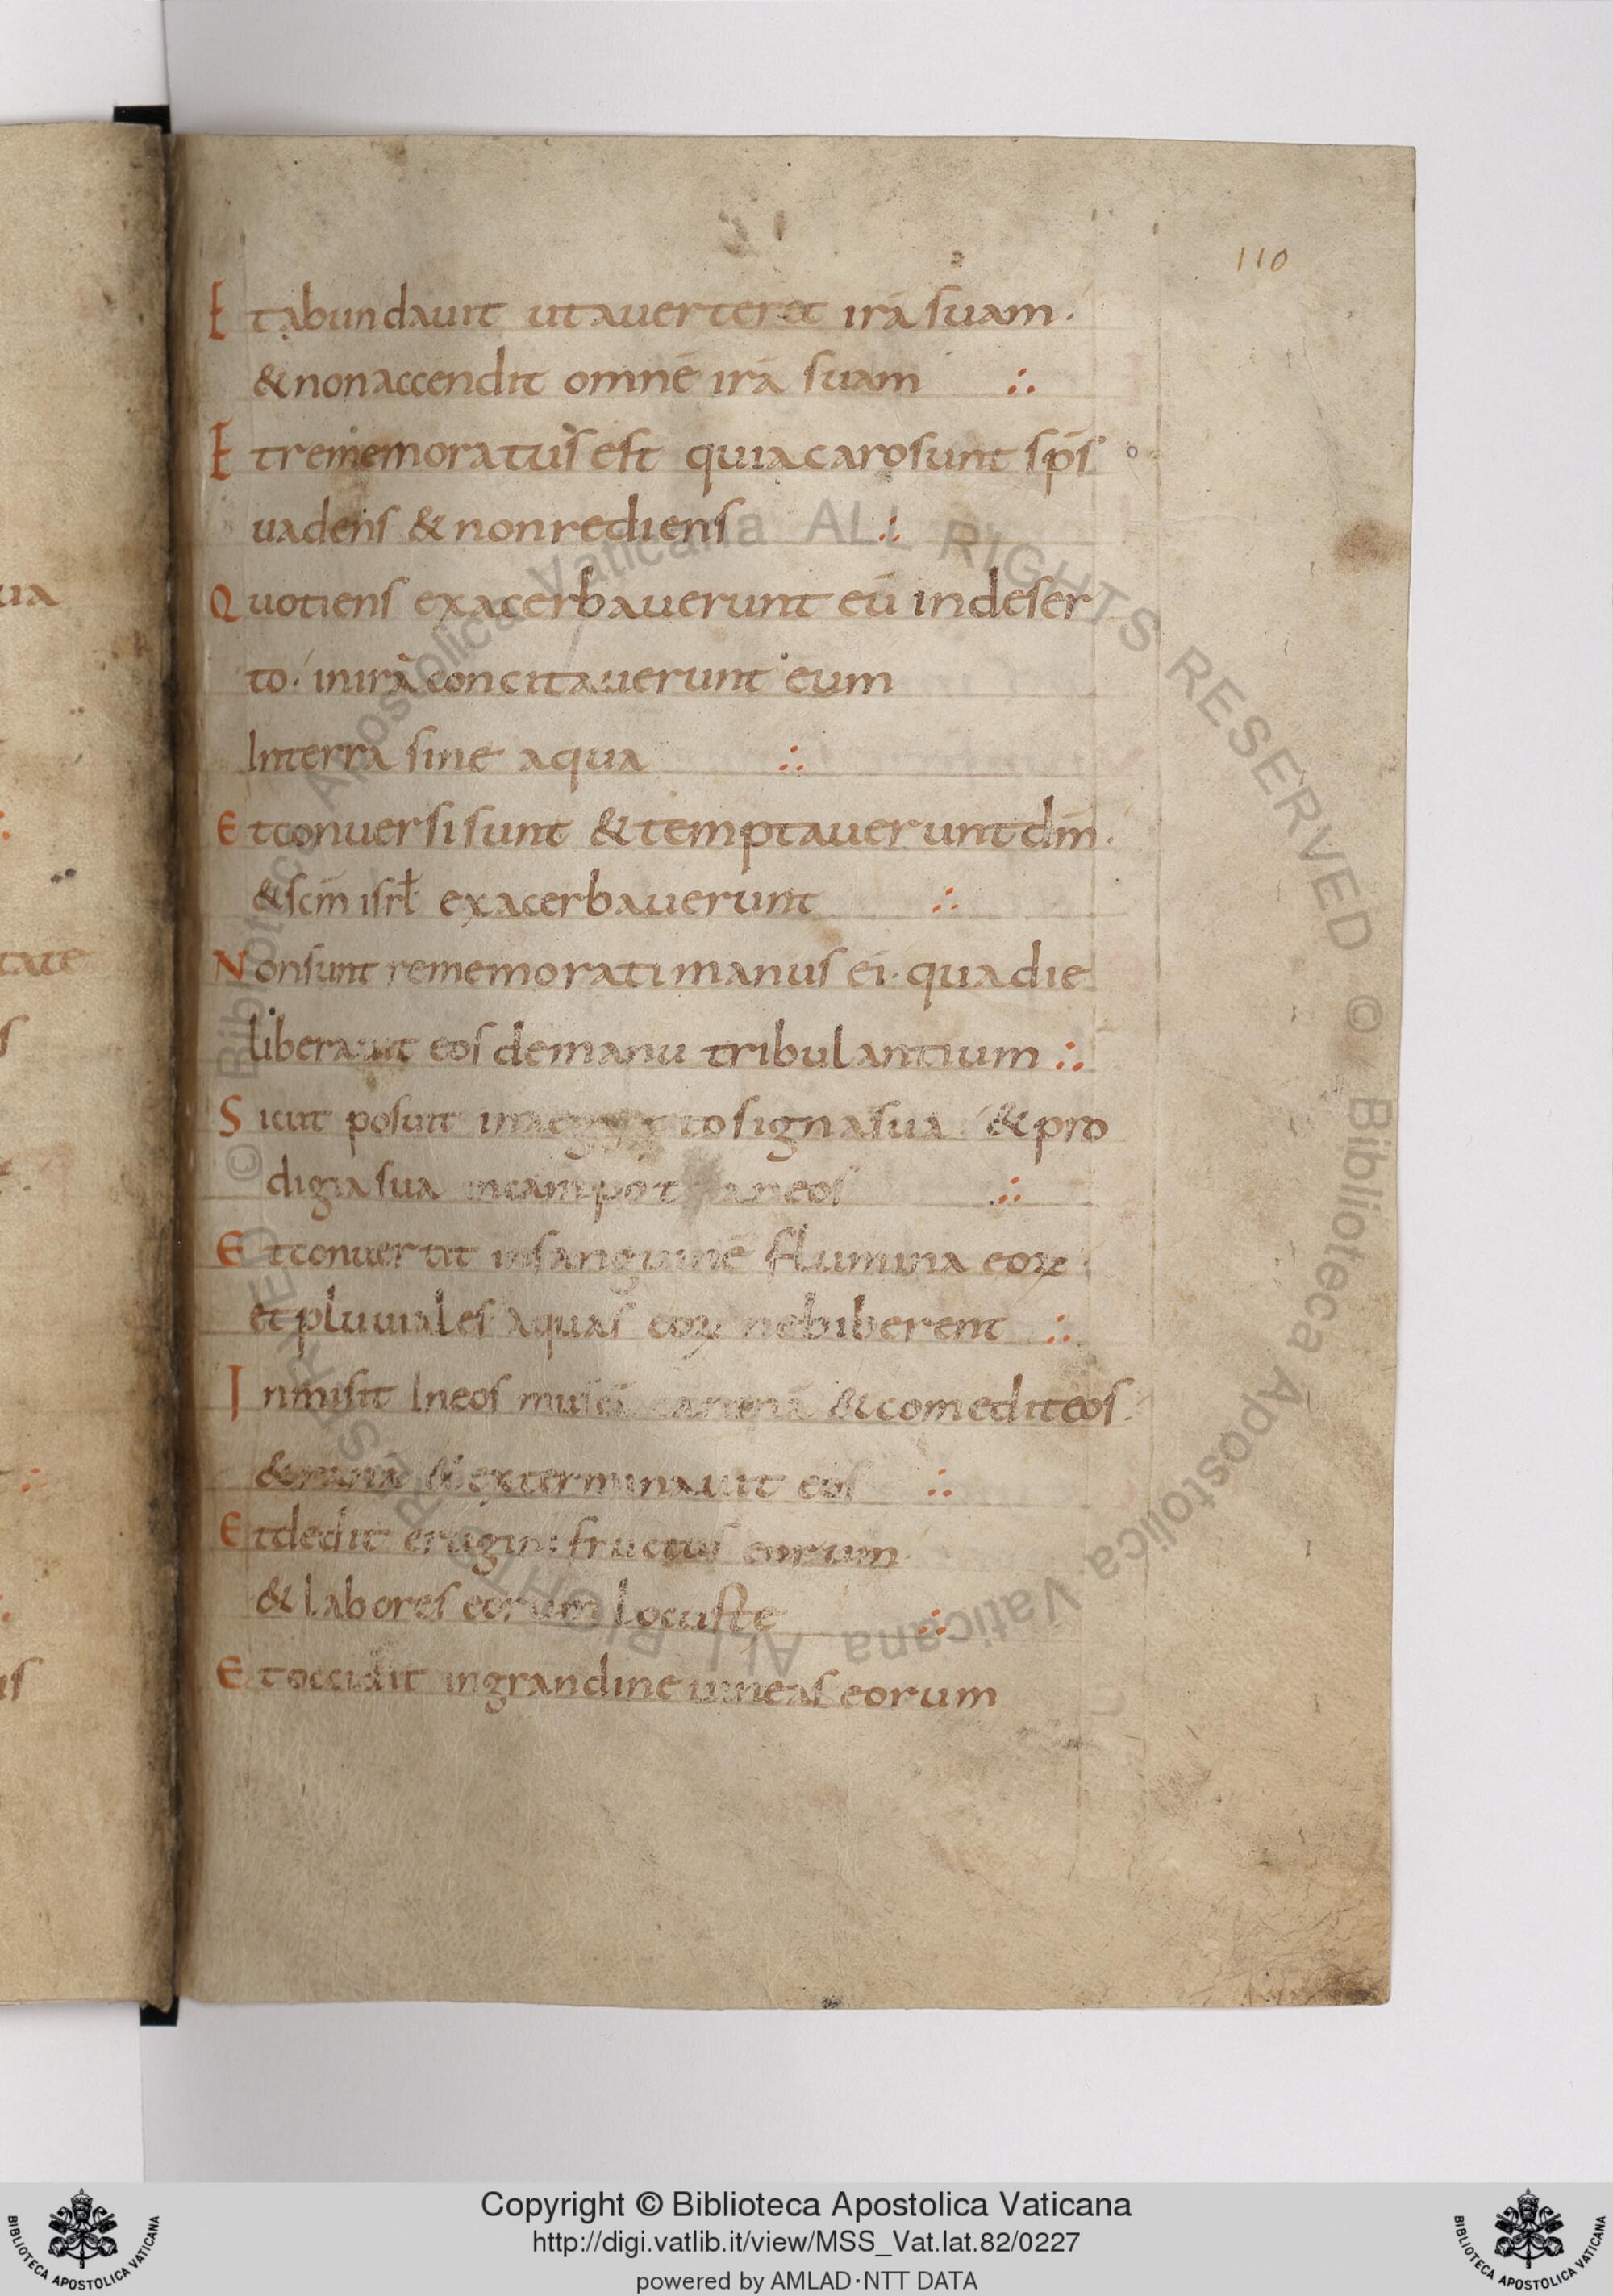 110
Et abundauit ut auerteret irā suam.
& non accendit omnē irā suam ∴
Et rememoratus est quia caro sunt sp̄s
uadens & non rediens ∴
Quotiens exacerbauerunt eū in deser
to. in irā concitauerunt eum
In terra sine aqua ∴
Et conuersi sunt & temptauerunt dm̄.
& scm̄ isrł exacerbauerunt ∴
Non sunt rememorati manus ei. qua die
liberauit eos de manu tribulantium ∴
Sicut posuit in aegypto signa sua & pro
digia sua in campo taneos ∴
Et conuertit in sanguinē flumina eoꝝ
et pluuiales aquas eoꝝ ne biberent ∴
Inmisit In eos muscā caninā & comedit eos.
& ranā & exterminauit eos ∴
Et dedit erugini fructus eorum
& labores eorum locuste ∴
Et occidit in grandine uineas eorum
ua
tate
s
is
Copyright © Biblioteca Apostolica Vaticana
http://digi.vatlib.it/view/MSS_Vat.lat.82/0227
powered by AMLAD·NTT DATA
BIBLIOTECA APOSTOLICA VATICANA
BIBLIOTECA APOSTOLICA VATICANA
© Biblioteca Apostolica Vaticana ALL RIGHTS RESERVED © Biblioteca Apostolica Vaticana ALL RIGHTS RESERVED